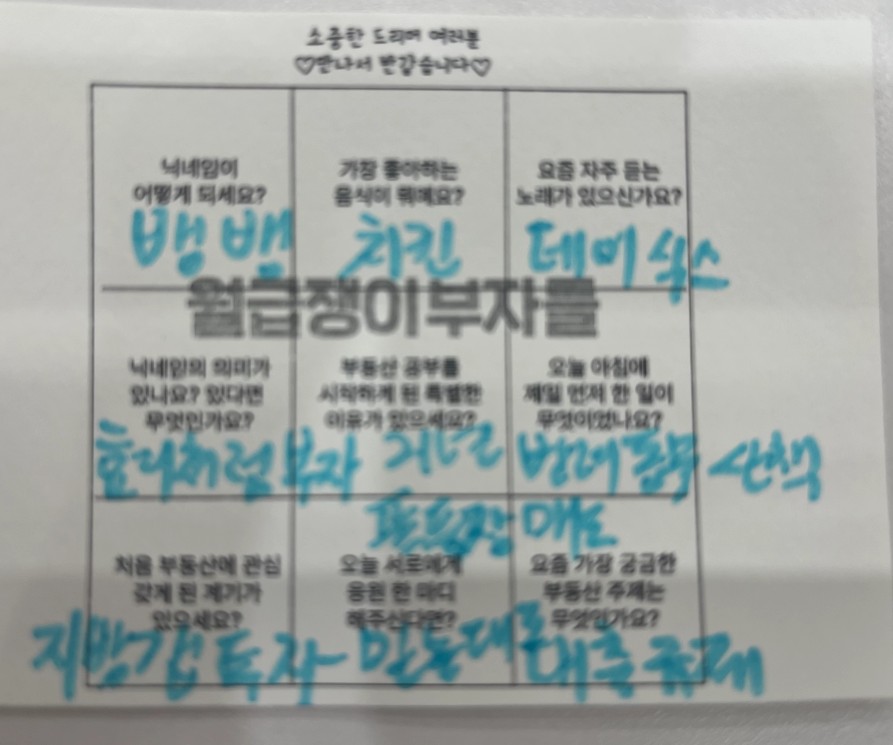 소중한 드리머 여러분
♡만나서 반갑습니다♡
닉네임이
어떻게 되세요?
뱅뱅
가장 좋아하는
음식이 뭐예요?
치킨
요즘 자주 듣는
노래가 있으신가요?
데이식스
월급쟁이부자들
닉네임의 의미가
있나요? 있다면
무엇인가요?
처럼 부자
부동산 공부를
시작하게 된 특별한
이유가 있으세요?
매도
오늘 아침에
제일 먼저 한 일이
무엇이었나요?
산책
처음 부동산에 관심
갖게 된 계기가
있으세요?
지방 갭투자
오늘 서로에게
응원 한 마디
해주신다면?
요즘 가장 궁금한
부동산 주제는
무엇인가요?
대출규제